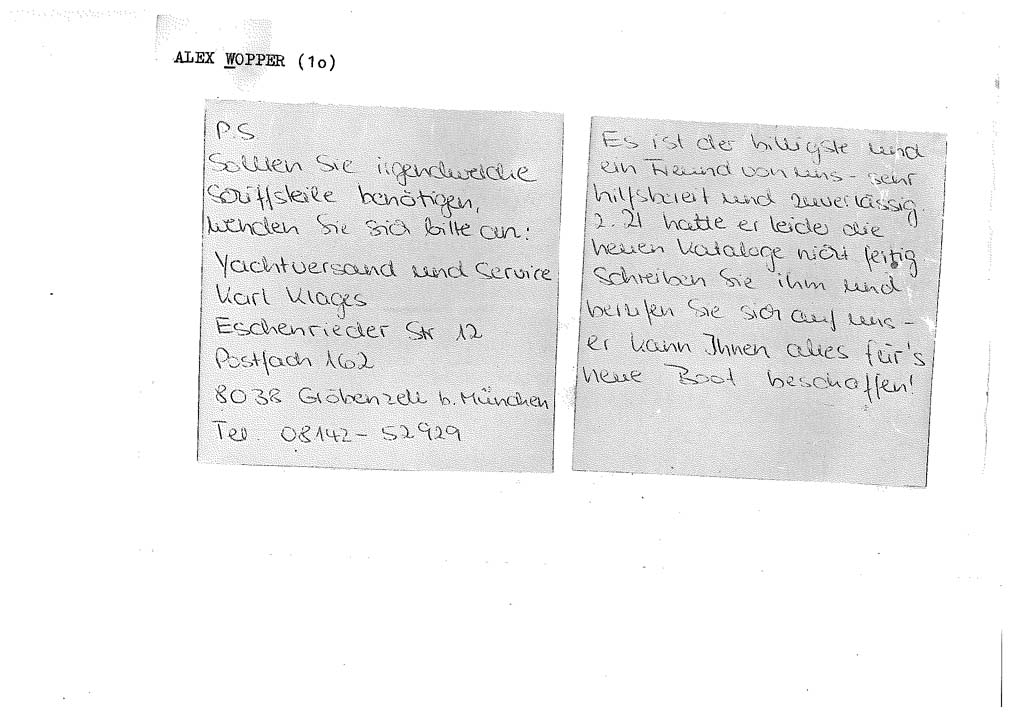 ALEX WOPPER (10)
P.S
Sollten Sie irgendwelche
Schiffsteile benötigen,
wenden Sie sich bitte an:
Yachtversand und Service
Karl Klages
Eschenrieder Str 12
Postfach 162
8038 Gröbenzell b. München
Tel. 08142-52929
Es ist der billigste und
ein Freund von uns - sehr
hilfsbereit und zuverlässig.
z. Zt hatte er leider die
neuen Kataloge nicht fertig
Schreiben Sie ihm und
berufen Sie sich auf uns -
er kann Ihnen alles für's
neue Boot beschaffen!